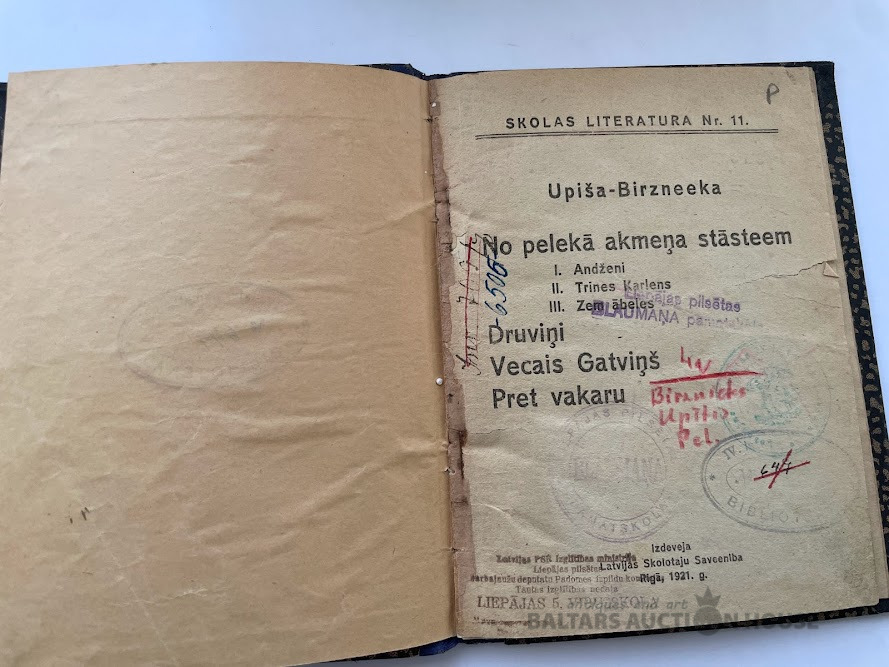 P
SKOLAS LITERATURA Nr. 11.
Upiša-Birzneeka
No pelekā akmeņa stāsteem
I. Andženi
II. Trines Karlens
III. Zem ābeles
Liepājas pilsētas
BLAUMAŅA
Druviņi
Vecais Gatviņš
Pret vakaru
6506
Birznieks
Upītis
Pel.
PAMATSKOLA
BIBLIOT
Izdeveja
Latvijas Skolotaju Saveeniba
Rīgā, 1921. g.
Latvijas PSR Izglītības ministrija
Liepājas pilsētas
darbaļaužu deputatu Padomes Izpildu
Tautas izglītības nodaļa
LIEPĀJAS 5.
antiques and art
BALTARS AUCTION HOUSE